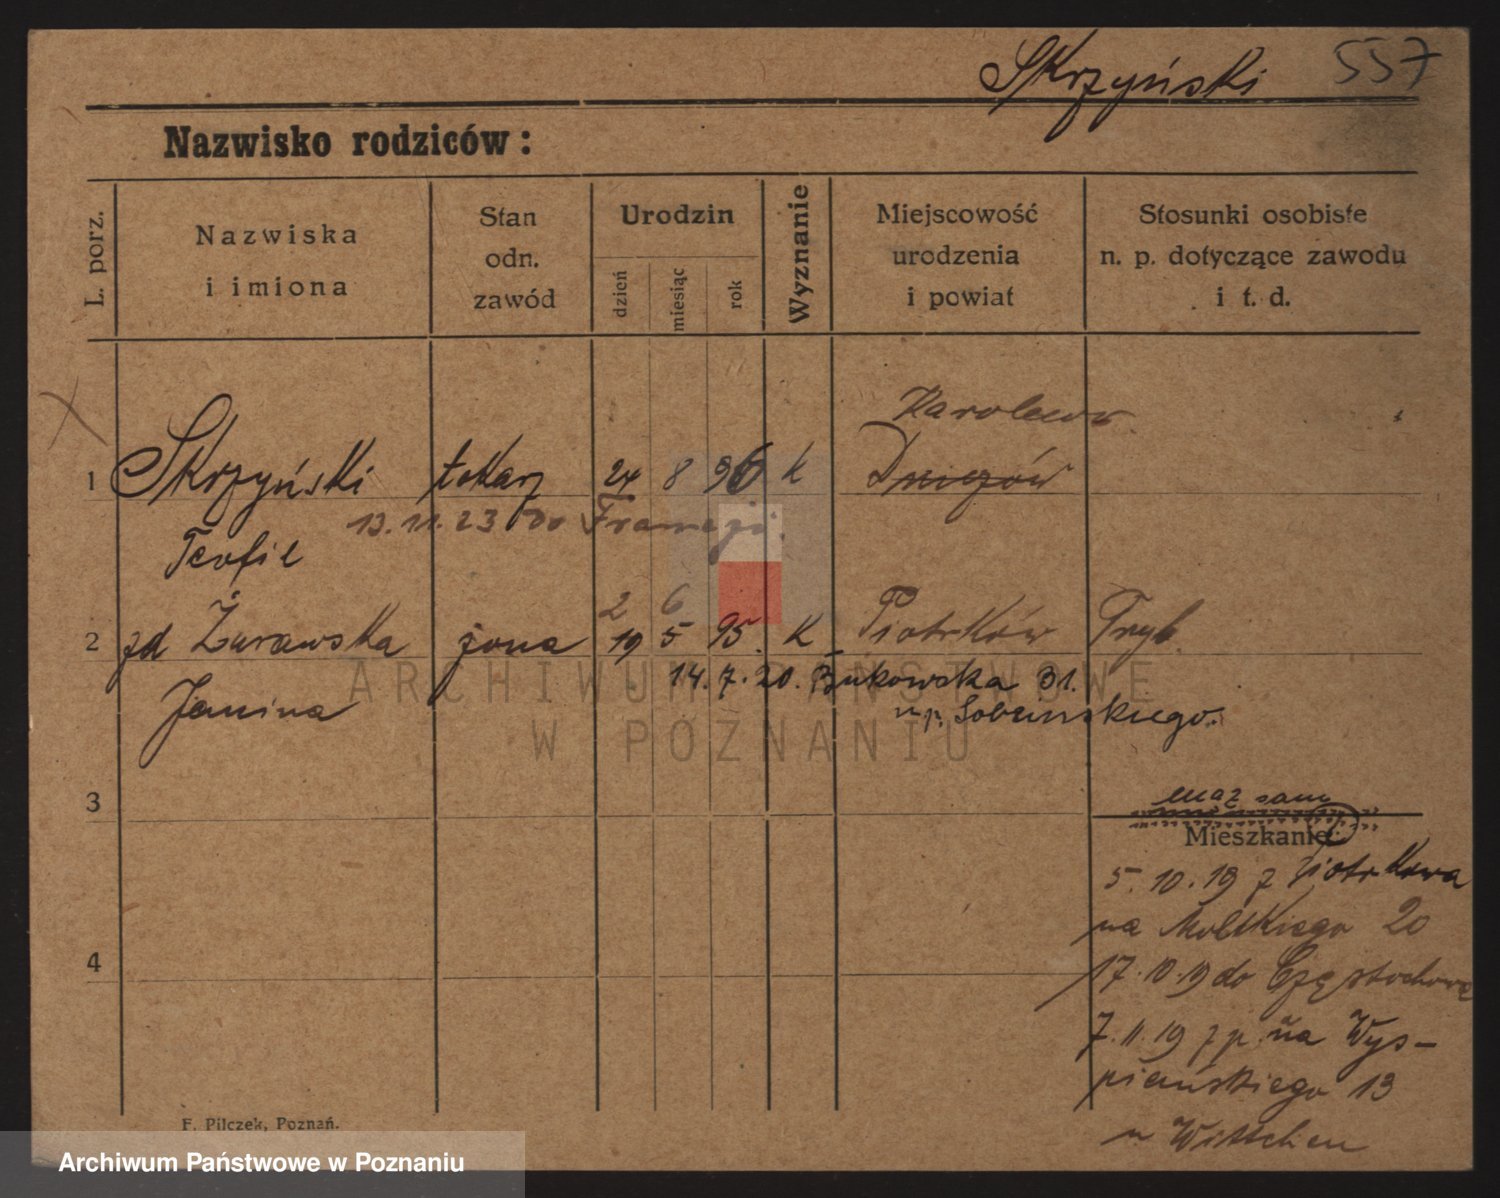 Skrzyński 557
Nazwisko rodziców:
L. porz.
Nazwiska
i imiona
Stan
odn.
zawód
Urodzin
dzień
miesiąc
rok
Wyznanie
Miejscowość
urodzenia
i powiat
Stosunki osobiste
n. p. dotyczące zawodu
i t. d.
Karolewo
1 Skrzyński tokarz 24 8 96 k
13.11.23 do Francji.
Teofil
2 6
2 zd Żurawska żona 19 5 95. K Piotrków Tryb.
14.7.20. Bukowska 31.
Janina
ARCHIWUM PAŃSTWOWE
W POZNANIU
3
mąż sam
Mieszkanie:
5.10.19 z Piotrkowa
na Moltkiego 20
4
17.10.19 do Częstochowa
7.11.19 zp. na Wys-
piańskiego 13
u Wittchen
F. Pilczek, Poznań.
Archiwum Państwowe w Poznaniu